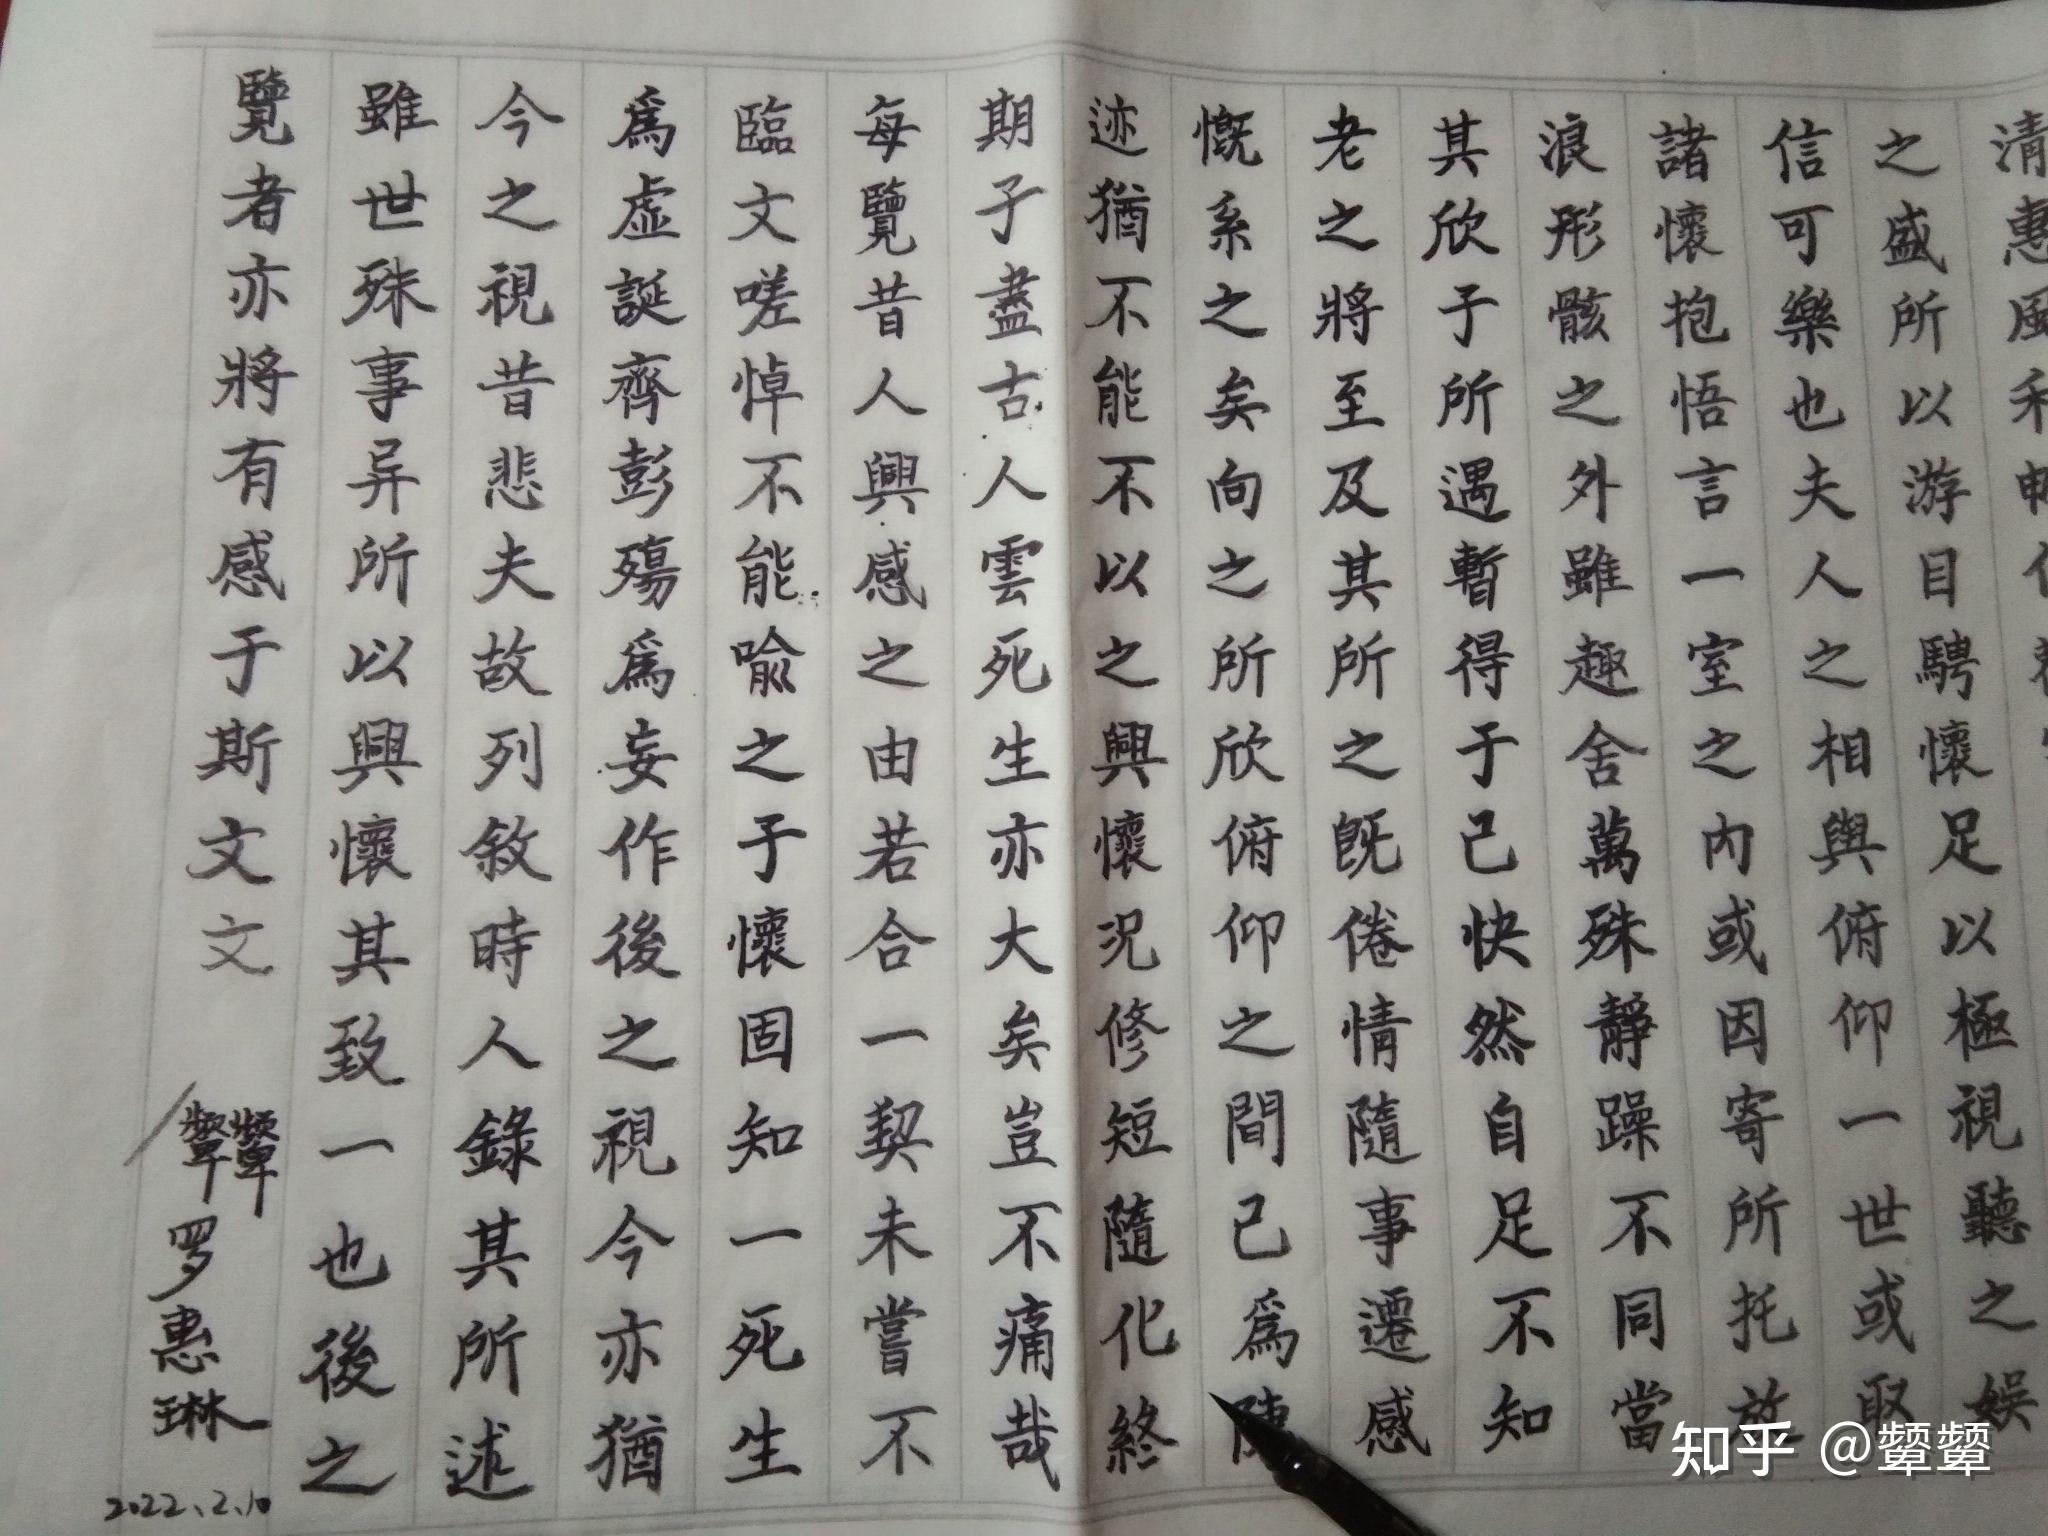 清惠風和暢
之盛所以游目騁懷足以極視聽之娛
信可樂也夫人之相與俯仰一世或取
諸懷抱悟言一室之內或因寄所托放
浪形骸之外雖趣舍萬殊靜躁不同當
其欣于所遇暫得于己快然自足不知
老之將至及其所之既倦情隨事遷感
慨系之矣向之所欣俯仰之間已為陳
迹猶不能不以之興懷況修短隨化終
期于盡古人雲死生亦大矣豈不痛哉
每覽昔人興感之由若合一契未嘗不
臨文嗟悼不能喻之于懷固知一死生
爲虛誕齊彭殤爲妄作後之視今亦猶
今之視昔悲夫故列敘時人錄其所述
雖世殊事异所以興懷其致一也後之
覽者亦將有感于斯文文
顰顰
罗惠琳
2022、2、10
知乎 @颦颦